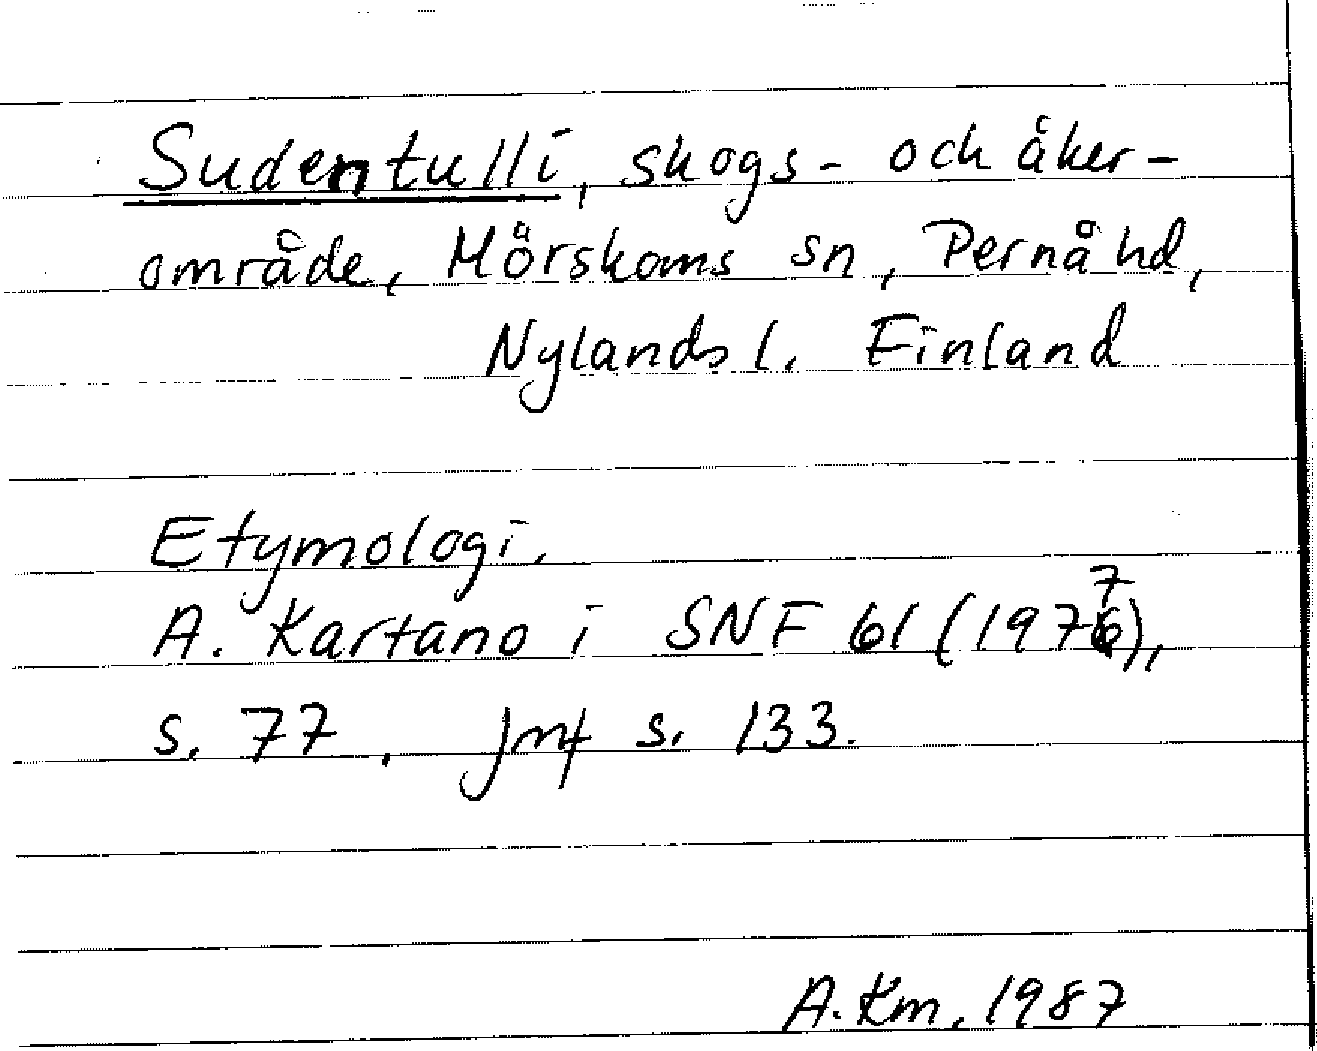 Sudentulli, skogs- och åker-
område, Mörskoms sn, Pernå hd,
Nylands l. Finland
Etymologi.
A. Kartano i SNF 61 (1977),
s. 77, jmf s. 133.
A. Km. 1987